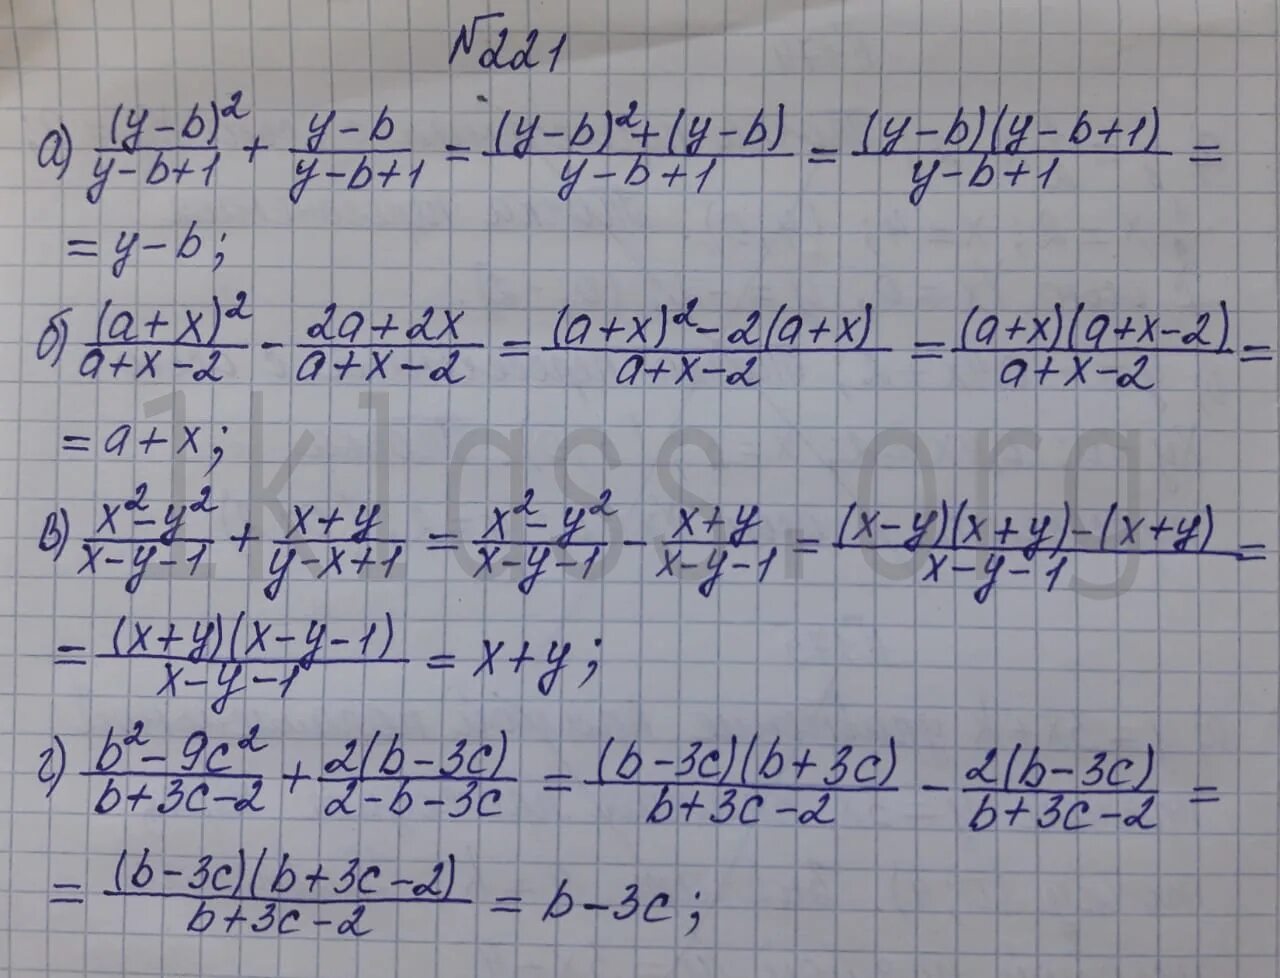 №221
а) (y-b)²/(y-b+1) + (y-b)/(y-b+1) = ((y-b)²+(y-b))/(y-b+1) = ((y-b)(y-b+1))/(y-b+1) =
= y-b;
б) (a+x)²/(a+x-2) - (2a+2x)/(a+x-2) = ((a+x)²-2(a+x))/(a+x-2) = ((a+x)(a+x-2))/(a+x-2) =
= a+x;
в) (x²-y²)/(x-y-1) + (x+y)/(y-x+1) = (x²-y²)/(x-y-1) - (x+y)/(x-y-1) = ((x-y)(x+y)-(x+y))/(x-y-1) =
= ((x+y)(x-y-1))/(x-y-1) = x+y;
г) (b²-9c²)/(b+3c-2) + 2(b-3c)/(2-b-3c) = ((b-3c)(b+3c))/(b+3c-2) - 2(b-3c)/(b+3c-2) =
= ((b-3c)(b+3c-2))/(b+3c-2) = b-3c;
1klass.org